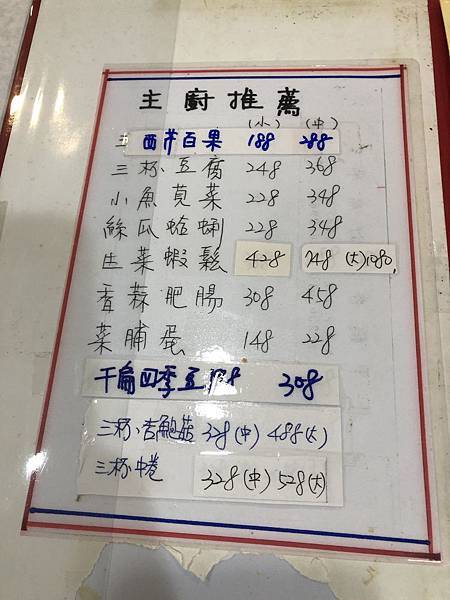 主廚推薦
(小) (中)
西芹百果 188 288
三杯豆腐 248 368
小魚莧菜 228 348
絲瓜蛤蜊 228 348
生菜蝦鬆 428 748 (大)1080
香蒜肥腸 308 458
菜脯蛋 148 228
干扁四季豆 198 308
三杯杏鮑菇 328(中) 488(大)
三杯中卷 328(中) 528(大)